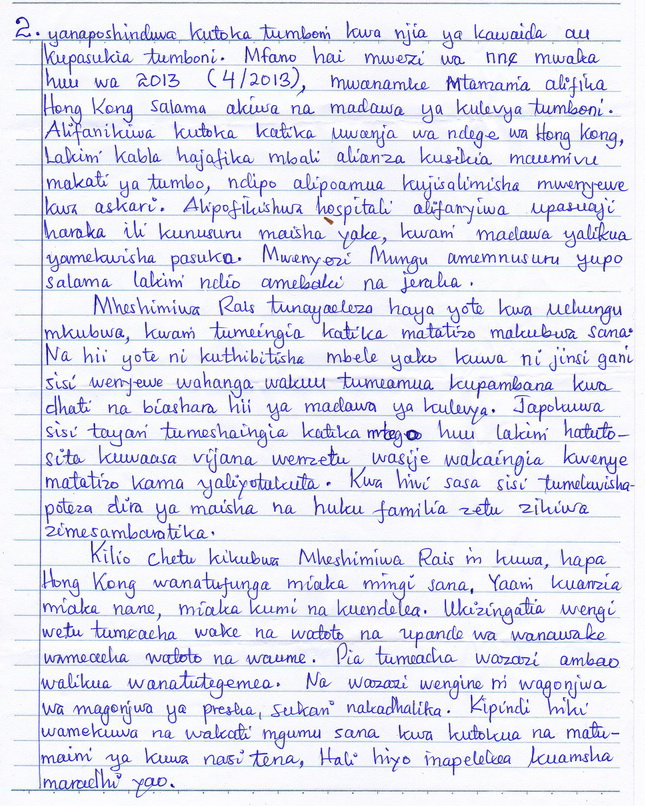 2. yanaposhinduwa kutoka tumboni kwa njia ya kawaida au
kupasukia tumboni. Mfano hai mwezi wa nne mwaka
huu wa 2013 (4/2013), mwanamke Mtanzania alifika
Hong Kong salama akiwa na madawa ya kulevya tumboni.
Alifanikiwa kutoka katika uwanja wa ndege wa Hong Kong,
Lakini kabla hajafika mbali alianza kusikia maumivu
makali ya tumbo, ndipo alipoamua kujisalimisha mwenyewe
kwa askari. Alipofikishwa hospitali alifanyiwa upasuaji
haraka ili kunusuru maisha yake, kwani madawa yalikua
yamekwisha pasuka. Mwenyezi Mungu amemnusuru yupo
salama lakini ndio amebaki na jeraha.
Mheshimiwa Rais tunayaeleza haya yote kwa uchungu
mkubwa, kwani tumeingia katika matatizo makubwa sana.
Na hii yote ni kuthibitisha mbele yako kuwa ni jinsi gani
sisi wenyewe wahanga wakuu tumeamua kupambana kwa
dhati na biashara hii ya madawa ya kulevya. Japokuwa
sisi tayari tumeshaingia katika mtego huu lakini hatuto-
sita kuwaasa vijana wenzetu wasije wakaingia kwenye
matatizo kama yaliyotukuta. Kwa hivi sasa sisi tumekwisha-
poteza dira ya maisha na huku familia zetu zikiwa
zimesambaratika.
Kilio chetu kikubwa Mheshimiwa Rais ni kuwa, hapa
Hong Kong wanatufunga miaka mingi sana, Yaani kuanzia
miaka nane, miaka kumi na kuendelea. Ukizingatia wengi
wetu tumeacha wake na watoto na upande wa wanawake
wameacha watoto na waume. Pia tumeacha wazazi ambao
walikua wanatutegemea. Na wazazi wengine ni wagonjwa
wa magonjwa ya presha, sukari nakadhalika. Kipindi hiki
wamekuwa na wakati mgumu sana kwa kutokua na matu-
maini ya kuwa nasi tena, Hali hiyo inapelekea kuamsha
maradhi yao.